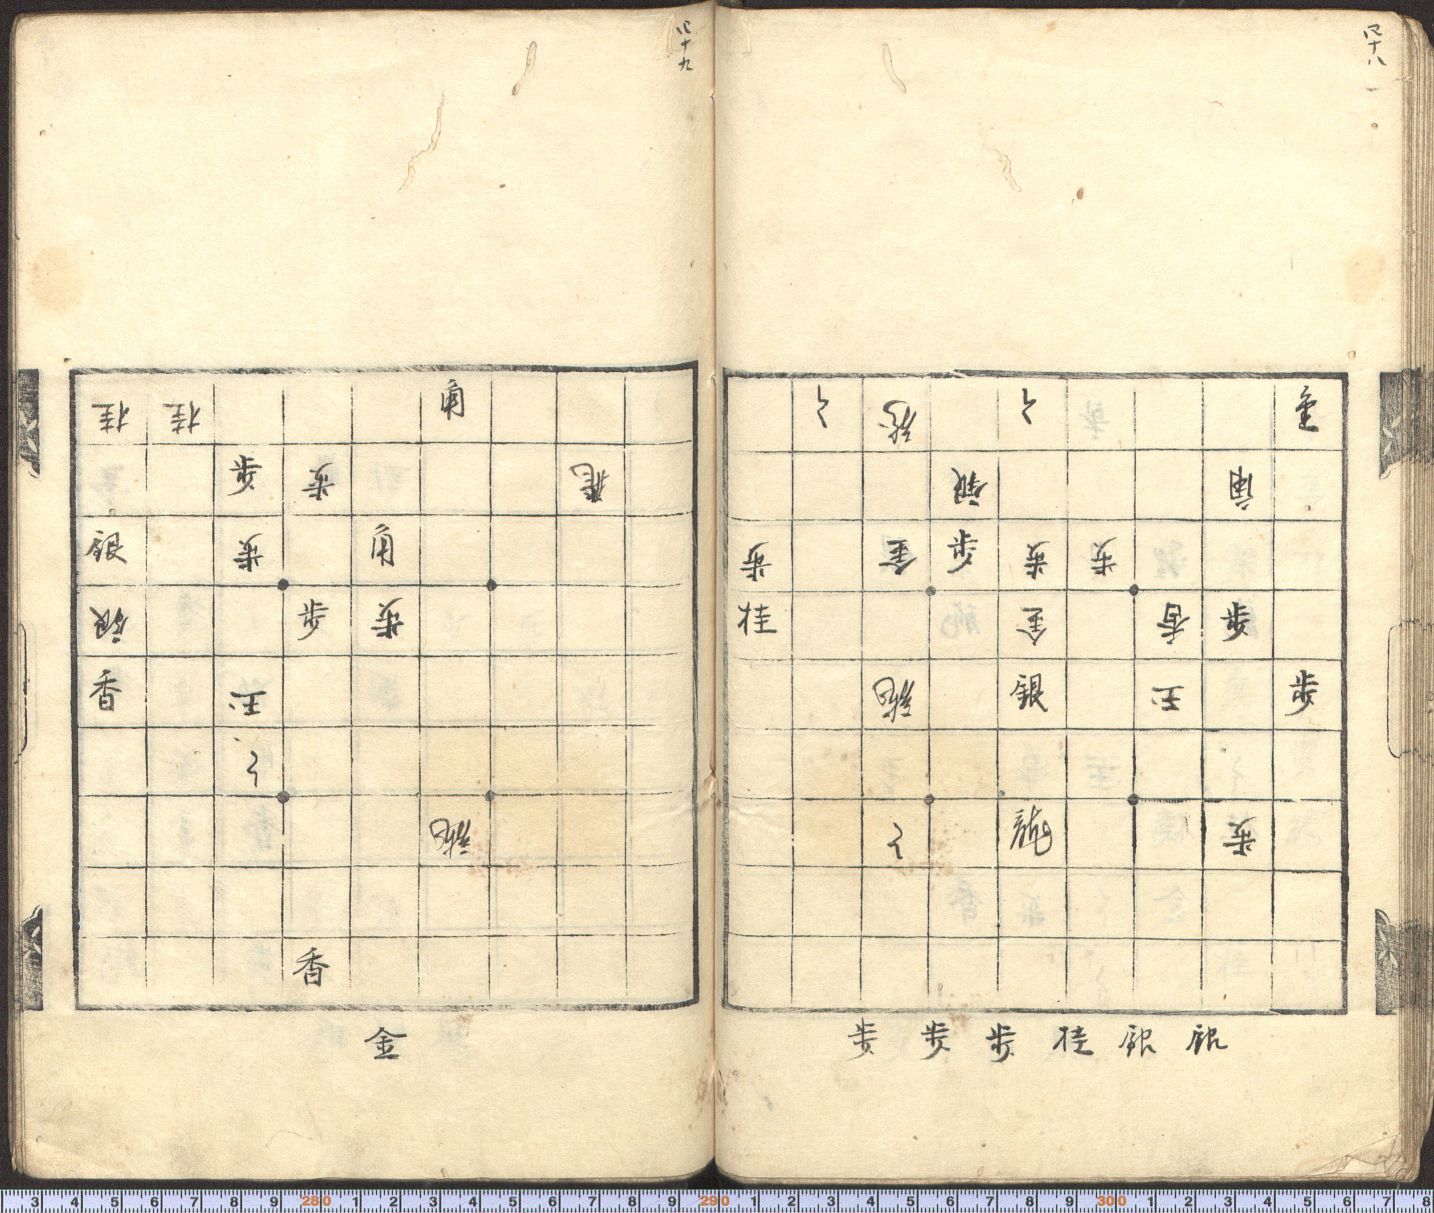 四十八
四十九
香
角 銀
歩 歩 歩 金 歩
歩 香 金 桂
歩 玉 銀 龍
歩
銀 銀 桂 歩 歩 歩
角 桂 桂
飛 歩 歩
角 歩 銀
歩 歩 銀
玉 香
龍
香
金
3 4 5 6 7 8 9 280 1 2 3 4 5 6 7 8 9 290 1 2 3 4 5 6 7 8 9 300 1 2 3 4 5 6 7 8